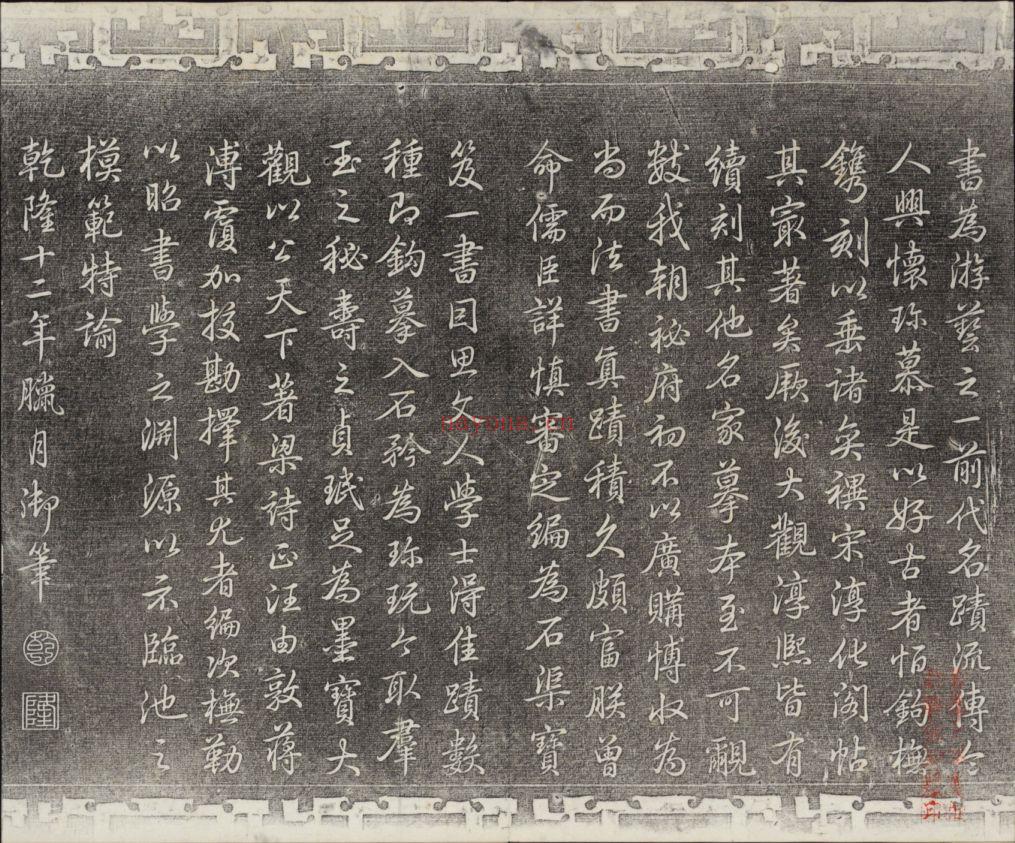 書為游藝之一前代名蹟流傳令
人興懷珎慕是以好古者恒鉤橅
鐫刻以垂諸奕禩宋淳化閣帖
其冣著矣厥後大觀淳熙皆有
續刻其他名家摹本至不可覼
數我朝祕府初不以廣購博收為
尚而法書真蹟積久頗富朕曾
命儒臣詳慎審定編為石渠寶
笈一書因思文人學士得佳蹟數
種即鈎摹入石矜為珎玩今取羣
玉之秘壽之貞珉足為墨寶大
觀以公天下著梁詩正汪由敦蔣
溥覆加校勘擇其尤者編次橅勒
以昭書學之淵源以示臨池之
模範特諭
乾隆十二年臘月御筆
乾
隆
nayona.cn